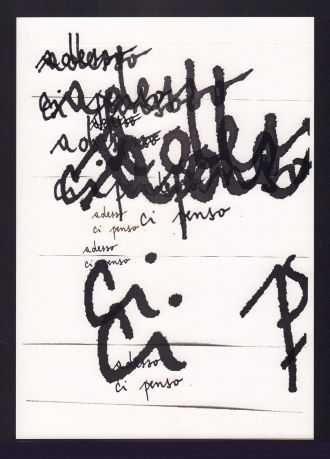 adesso
ci penso
adesso
adesso
adesso
ci penso
ci penso
adesso
ci penso
adesso
ci penso
ci
p
ci
adesso
ci penso